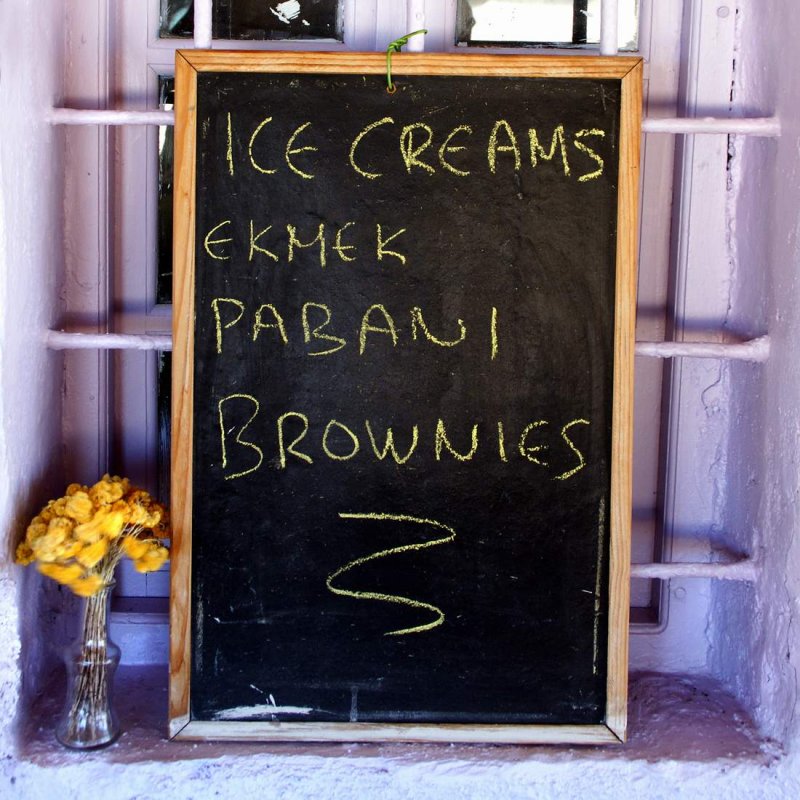 ICE CREAMS
EKMEK
PABANI
BROWNIES